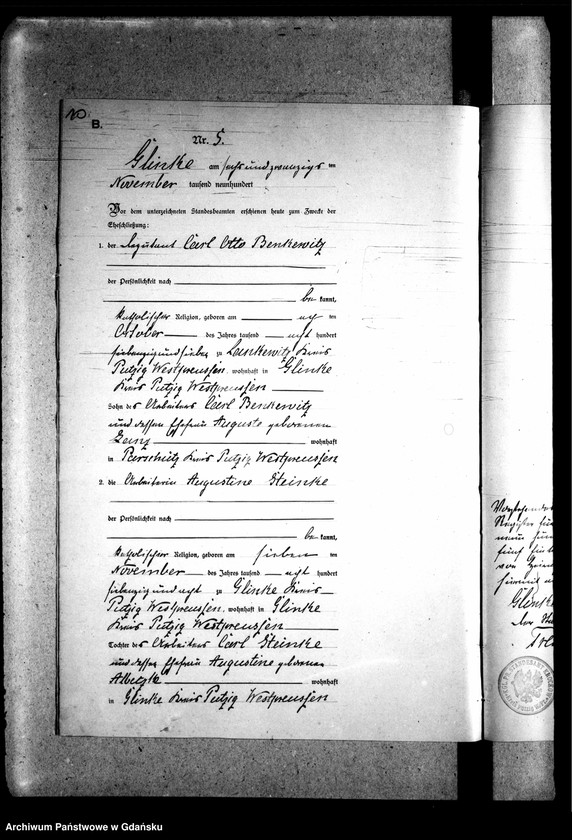 B.
Nr. 5.
Glinke am sechsundzwanzigs ten
November tausend neunhundert
Vor dem unterzeichneten Standesbeamten erschienen heute zum Zwecke der
Eheschließung:
1. der Carl Otto Benkewitz
der Persönlichkeit nach
be kannt,
katholischer Religion, geboren am acht ten
October des Jahres tausend acht hundert
siebenzig und sieben zu Lankewitz Kreis
Putzig Westpreussen, wohnhaft in Glinke
Kreis Putzig Westpreussen
Sohn des Arbeiters Carl Benkewitz
und dessen Ehefrau Auguste geborenen
wohnhaft
in Kreis Putzig Westpreussen
2. die Arbeiterin Augustine Steinke
der Persönlichkeit nach
be kannt,
katholischer Religion, geboren am sieben ten
November des Jahres tausend acht hundert
siebenzig und acht zu Glinke Kreis
Putzig Westpreussen, wohnhaft in Glinke
Kreis Putzig Westpreussen
Tochter des Arbeiters Carl Steinke
und dessen Ehefrau Augustine geborenen
wohnhaft
in Glinke Kreis Putzig Westpreussen
Glinke
Archiwum Państwowe w Gdańsku